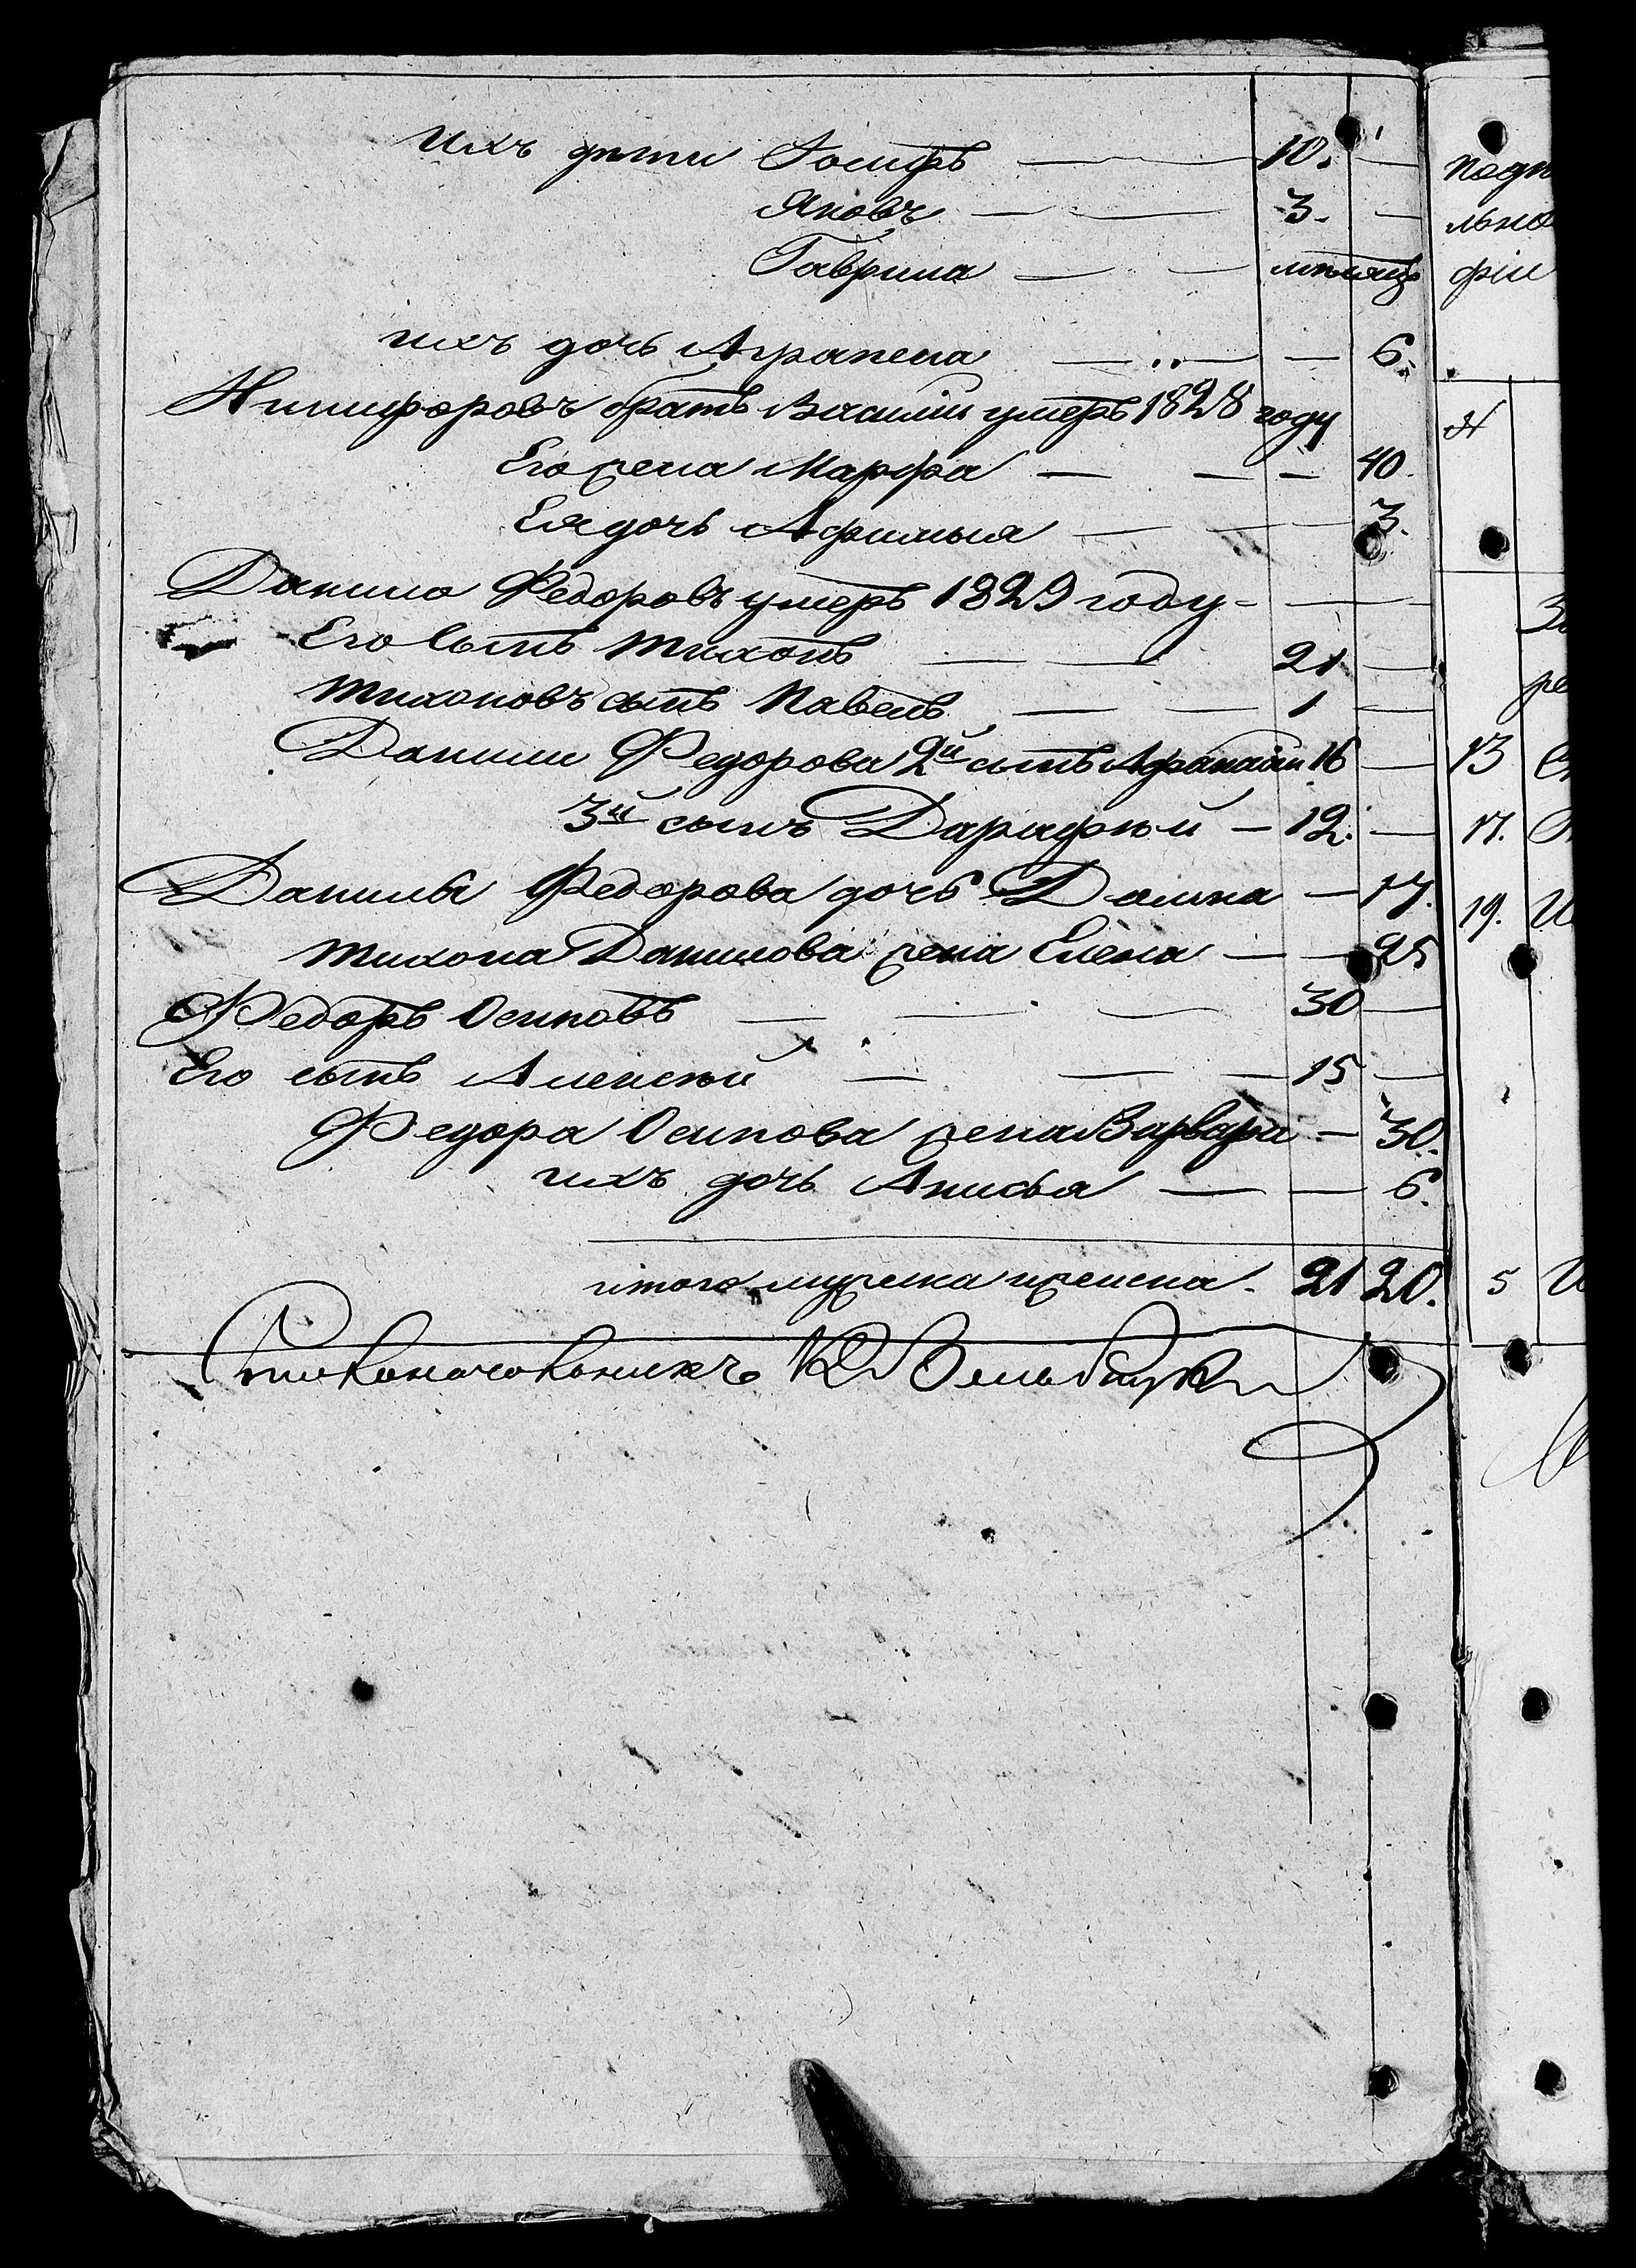 Ихъ дѣти Іосифъ — 10. —
Яковъ — 3. —
Гаврила — мѣсяцъ
ихъ дочь Аграпена — — 6.
Никифоровъ братъ Василій умеръ 1828 году
Его жена Марфа — — 40.
Ея дочь Афимья — — 3.
Данило Федоровъ умеръ 1829 году — —
Его сынъ Тихонъ — 21 —
Тихоновъ сынъ Павелъ — 1 —
Данилы Федорова 2й сынъ Афанасій 16 —
3й сынъ Дарафѣй — 12. —
Данилы Федорова дочь Домна — 17.
Тихона Данилова жена Елена — — 25
Федоръ Осиповъ — 30 —
Его сынъ Алексѣй — 15 —
Федора Осипова жена Варвара — 30.
ихъ дочь Анисья — — 6.
итого мужеска и женска. 21 20.
Столоначальникъ
подп
льно
фіи
13
17.
19. И
5 И